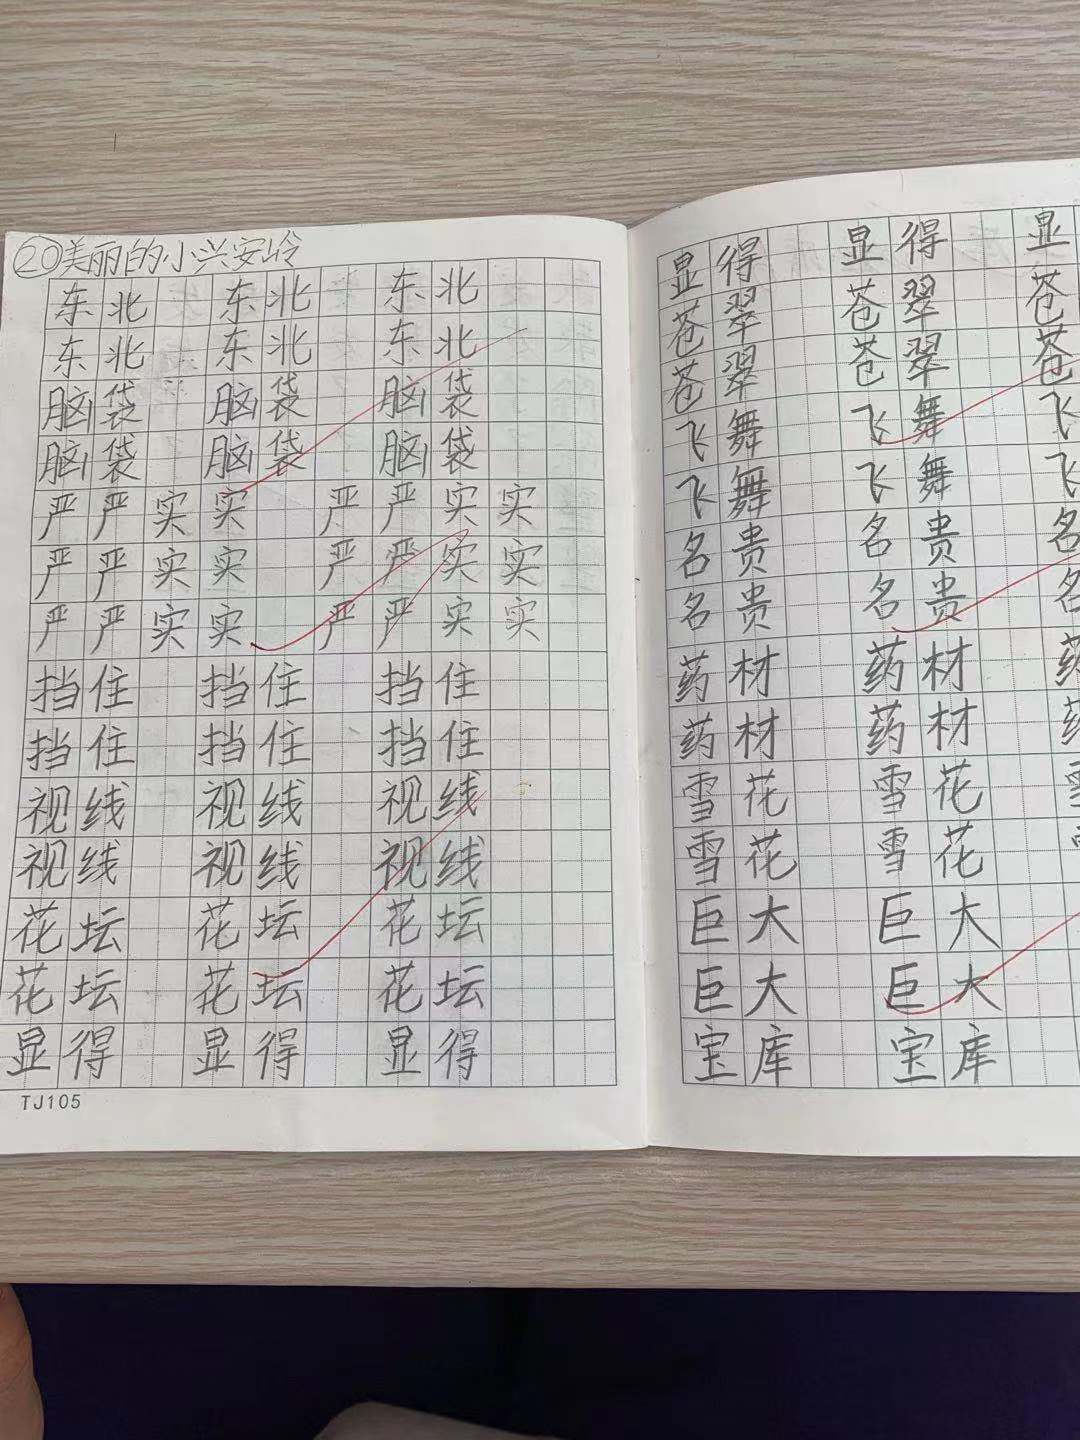 ⑳美丽的小兴安岭
东北 东北 东北
东北 东北 东北
脑袋 脑袋 脑袋
脑袋 脑袋 脑袋
严严实实 严严实实
严严实实 严严实实
严严实实 严严实实
挡住 挡住 挡住
挡住 挡住 挡住
视线 视线 视线
视线 视线 视线
花坛 花坛 花坛
花坛 花坛 花坛
显得 显得 显得
TJ105
显得 显得 显
苍翠 苍翠 苍
苍翠 苍翠 苍
飞舞 飞舞 飞
飞舞 飞舞 飞
名贵 名贵 名
名贵 名贵 名
药材 药材 药
药材 药材 药
雪花 雪花
雪花 雪花
巨大 巨大
巨大 巨大
宝库 宝库